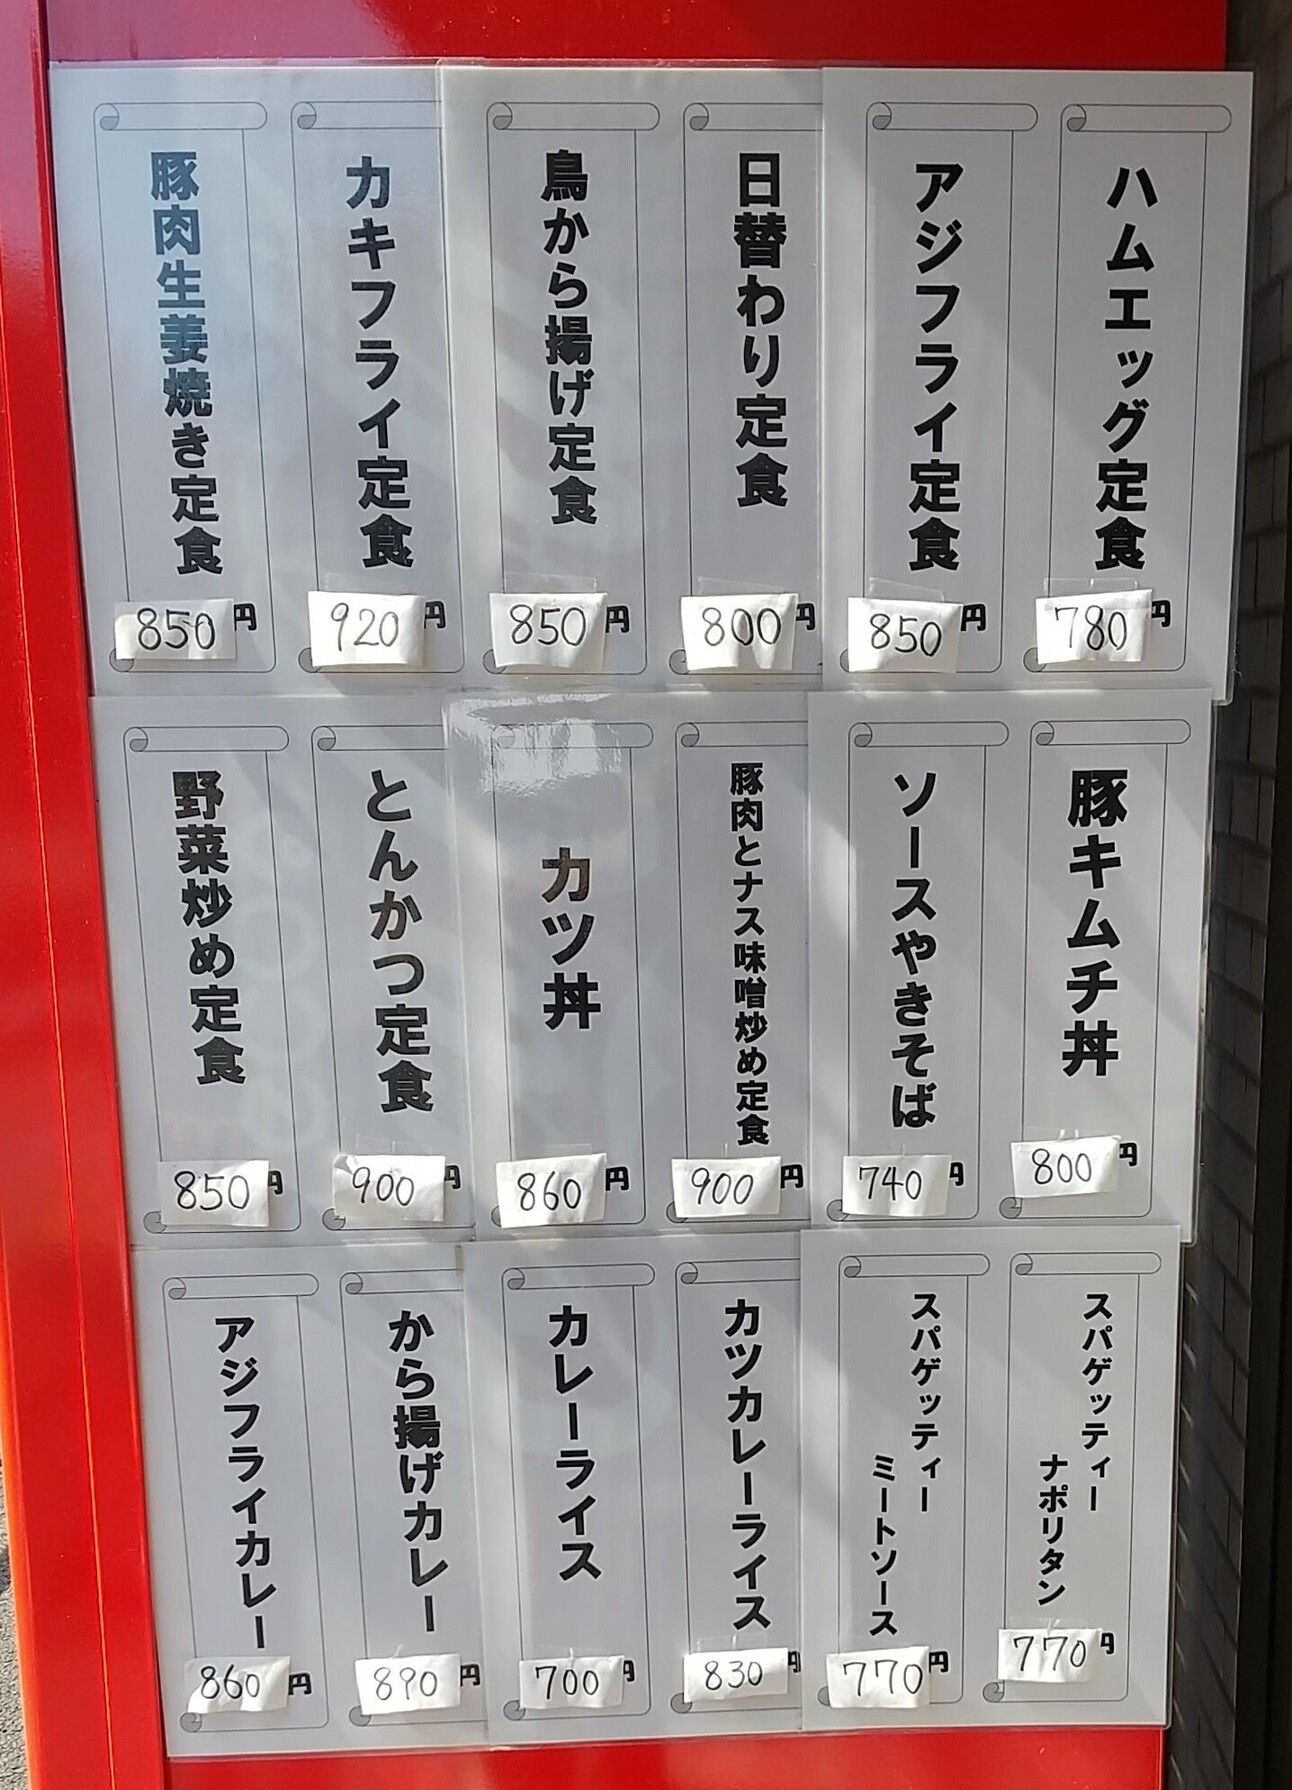 ハムエッグ定食
780円
アジフライ定食
850円
日替わり定食
800円
鳥から揚げ定食
850円
カキフライ定食
920円
豚肉生姜焼き定食
850円
豚キムチ丼
800円
ソースやきそば
740円
豚肉とナス味噌炒め定食
900円
カツ丼
860円
とんかつ定食
900円
野菜炒め定食
850円
スパゲッティー
ナポリタン
770円
スパゲッティー
ミートソース
770円
カツカレーライス
830円
カレーライス
700円
から揚げカレー
890円
アジフライカレー
860円